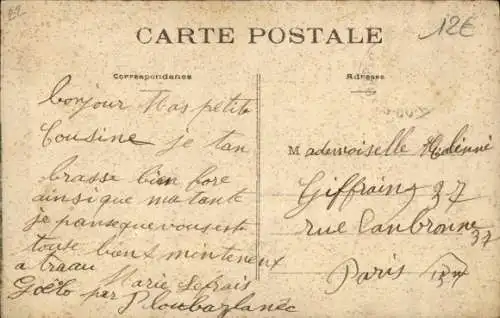 22
12€
CARTE POSTALE
Correspondance
Adresse
bonjour Mas petite
Cousine je tan
brasse bien fore
ainsi que ma tante
je panse que vous est
touse bient minteneux
a traau Marie Lefrais
Goëlo par Ploubazlanec
Mademoiselle
Giffraing 37
rue Canbronne
37
Paris